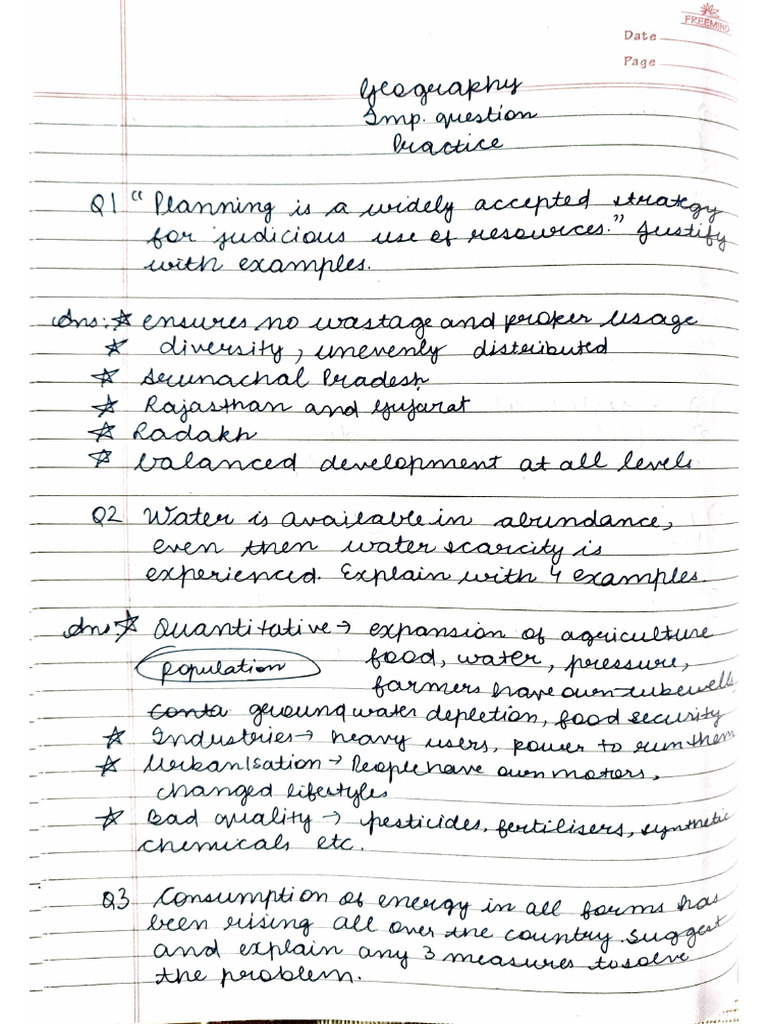 FREEMIND
Date
Page
Geography
Imp. question
Practice
Q1 "Planning is a widely accepted strategy
for judicious use of resources." Justify
with examples.
Ans: ☆ ensures no wastage and proper usage
☆ diversity, unevenly distributed
☆ Arunachal Pradesh
☆ Rajasthan and Gujarat
☆ Ladakh
☆ balanced development at all levels
Q2 Water is available in abundance,
even then water scarcity is
experienced. Explain with 4 examples.
Ans: ☆ Quantitative → expansion of agriculture
population food, water, pressure,
farmers have own tubewells,
Conta groundwater depletion, food security
☆ Industries → heavy users, power to run them
☆ Urbanisation → People have own motors,
changed lifestyles
☆ Bad quality → pesticides, fertilisers, synthetic
chemicals etc.
Q3 Consumption of energy in all forms has
been rising all over the country. Suggest
and explain any 3 measures to solve
the problem.